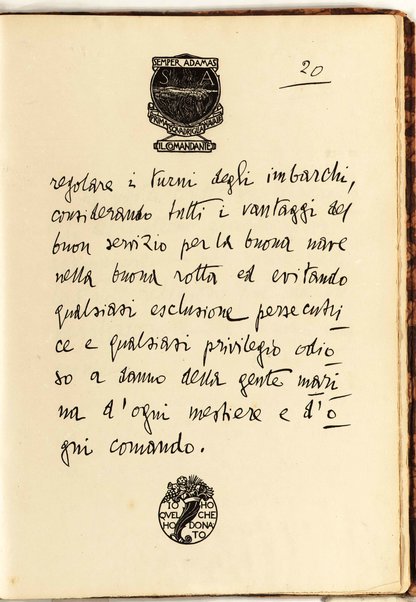 SEMPER ADAMAS
S A
IL COMANDANTE
20
regolare i turni degli imbarchi,
considerando tutti i vantaggi del
buon servizio per la buona nave
nella buona rotta ed evitando
qualsiasi esclusione persecutri
ce e qualsiasi privilegio odio
so a danno della gente mari
na d'ogni mestiere e d'o
gni comando.
IO HO
QVEL CHE
HO DONA
TO